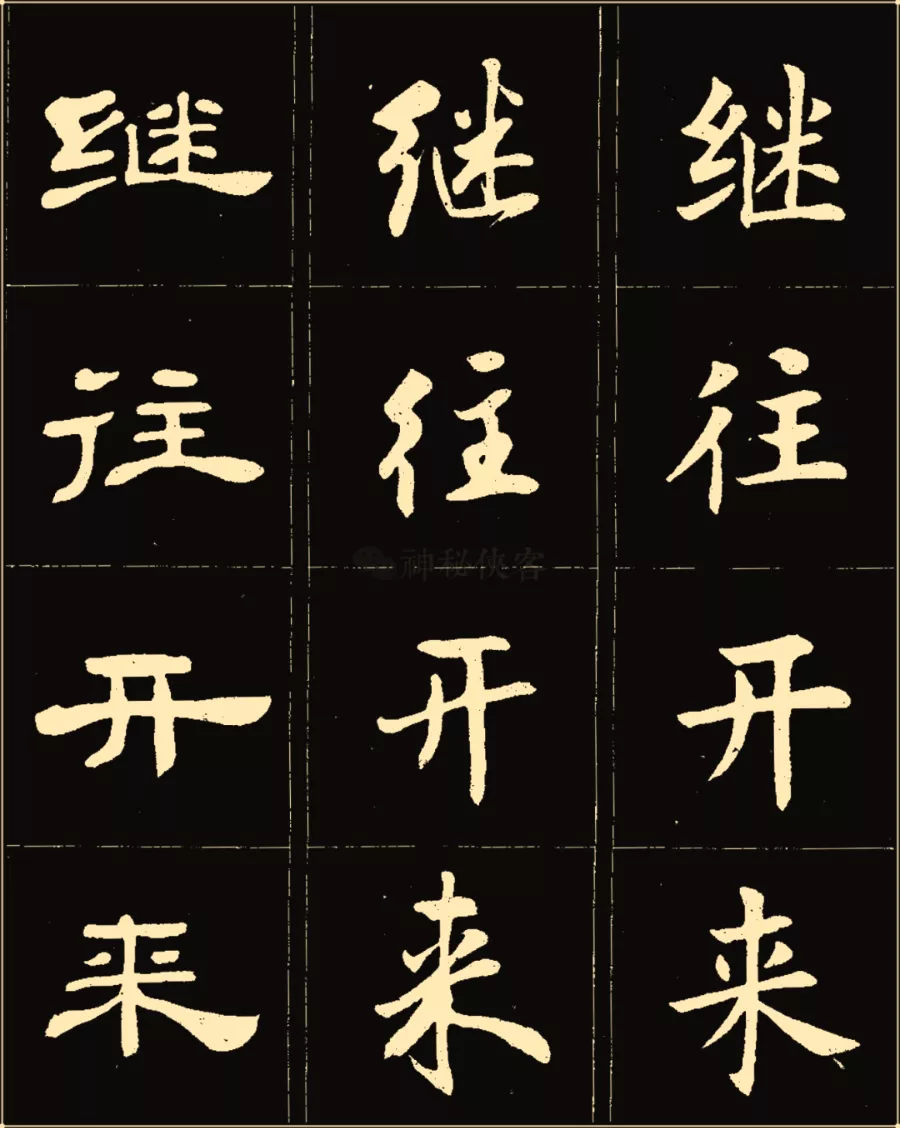 继往开来
继往开来
继往开来
神秘侠客